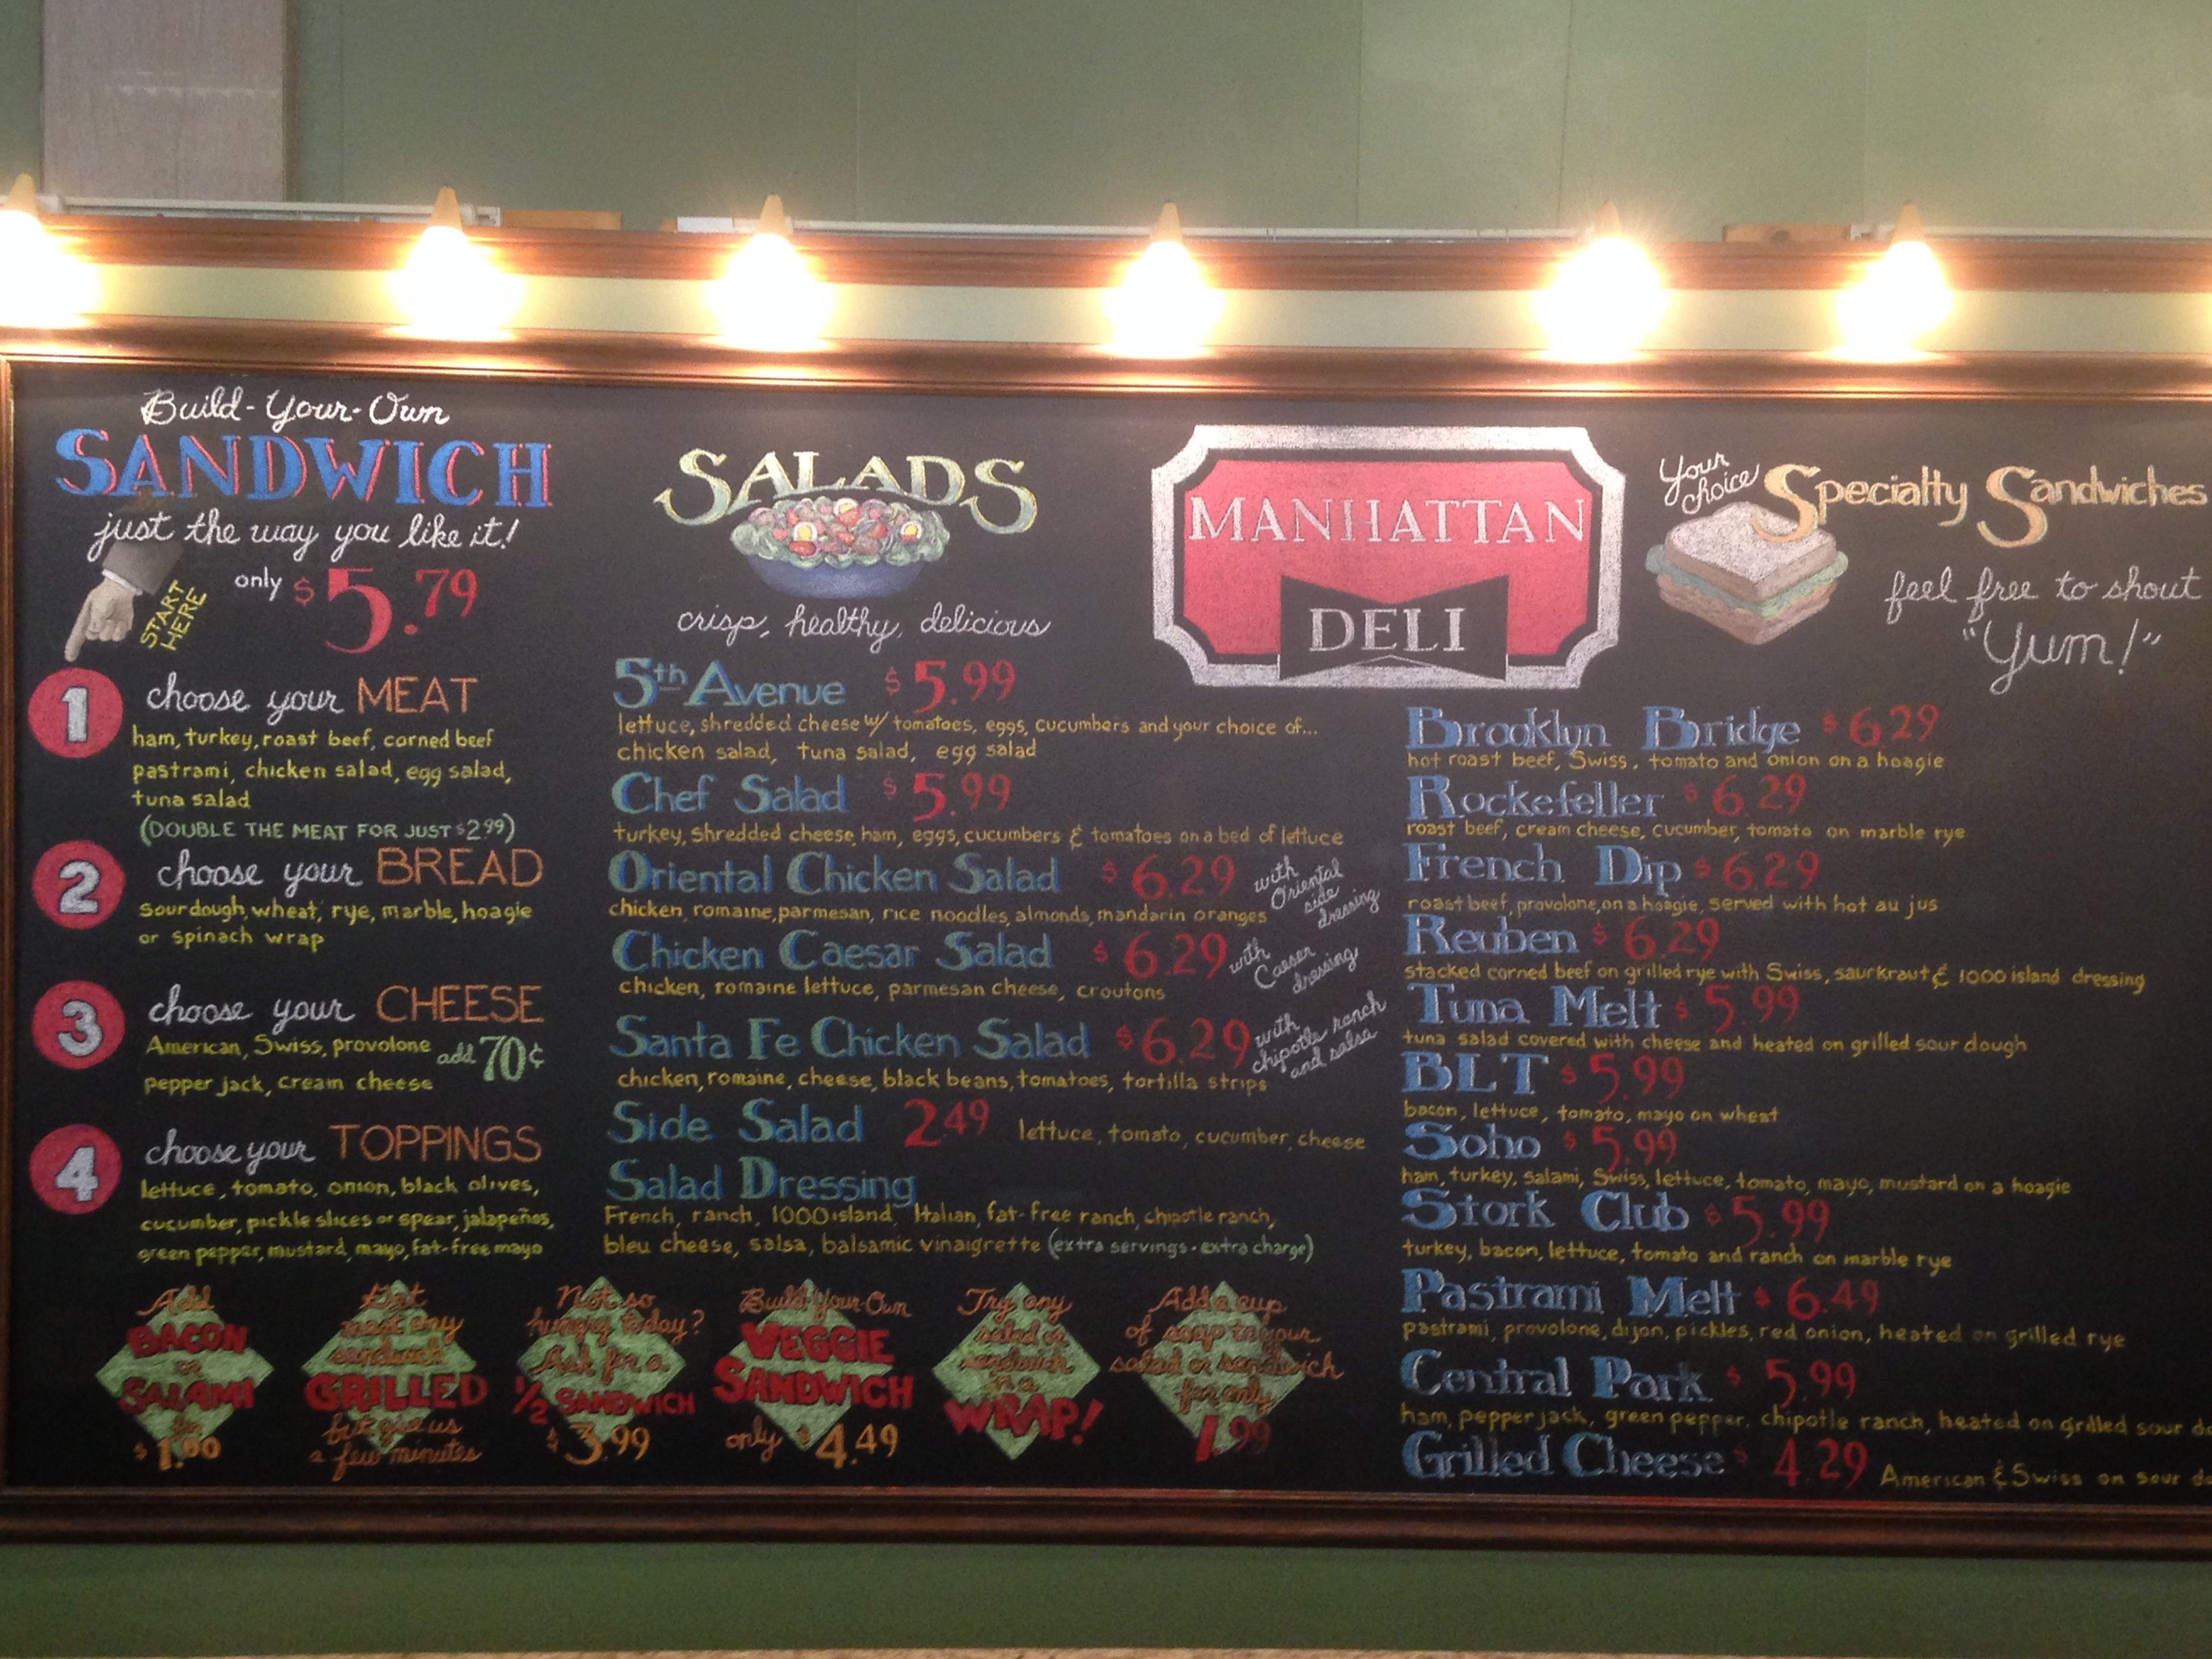 Build-Your-Own
SANDWICH
just the way you like it!
only $5.79
START
HERE
1 choose your MEAT
ham, turkey, roast beef, corned beef
pastrami, chicken salad, egg salad,
tuna salad
(DOUBLE THE MEAT FOR JUST $2.99)
2 choose your BREAD
sourdough, wheat, rye, marble, hoagie
or spinach wrap
3 choose your CHEESE
American, Swiss, provolone add 70¢
pepper jack, cream cheese
4 choose your TOPPINGS
lettuce, tomato, onion, black olives,
cucumber, pickle slices or spear, jalapeños,
green pepper, mustard, mayo, fat-free mayo
SALADS
crisp, healthy, delicious
5th Avenue $5.99
lettuce, shredded cheese w/ tomatoes, eggs, cucumbers and your choice of...
chicken salad, tuna salad, egg salad
Chef Salad $5.99
turkey, shredded cheese, ham, eggs, cucumbers & tomatoes on a bed of lettuce
Oriental Chicken Salad $6.29
with
Oriental
side
dressing
chicken, romaine, parmesan, rice noodles, almonds, mandarin oranges
Chicken Caesar Salad $6.29
with
Caesar
dressing
chicken, romaine lettuce, parmesan cheese, croutons
Santa Fe Chicken Salad $6.29
with
chipotle ranch
and salsa
chicken, romaine, cheese, black beans, tomatoes, tortilla strips
Side Salad 2.49 lettuce, tomato, cucumber, cheese
Salad Dressing
French, ranch, 1000 island, Italian, fat-free ranch, chipotle ranch,
bleu cheese, salsa, balsamic vinaigrette (extra servings - extra charge)
Add
BACON
or
SALAMI
for
$1.00
Get
most any
sandwich
GRILLED
but give us
a few minutes
Not so
hungry today?
Ask for a
1/2 SANDWICH
$3.99
Build-Your-Own
VEGGIE
SANDWICH
only $4.49
Try any
salad or
sandwich
in a
WRAP!
Add a cup
of soup to your
salad or sandwich
for only
1.99
MANHATTAN
DELI
Your
choice
Specialty Sandwiches
feel free to shout
"Yum!"
Brooklyn Bridge $6.29
hot roast beef, Swiss, tomato and onion on a hoagie
Rockefeller $6.29
roast beef, cream cheese, cucumber, tomato on marble rye
French Dip $6.29
roast beef, provolone, on a hoagie, served with hot au jus
Reuben $6.29
stacked corned beef on grilled rye with Swiss, saurkraut & 1000 island dressing
Tuna Melt $5.99
tuna salad covered with cheese and heated on grilled sour dough
BLT $5.99
bacon, lettuce, tomato, mayo on wheat
Soho $5.99
ham, turkey, salami, Swiss, lettuce, tomato, mayo, mustard on a hoagie
Stork Club $5.99
turkey, bacon, lettuce, tomato and ranch on marble rye
Pastrami Melt $6.49
pastrami, provolone, dijon, pickles, red onion, heated on grilled rye
Central Park $5.99
ham, pepper jack, green pepper, chipotle ranch, heated on grilled sour do
Grilled Cheese $4.29 American & Swiss on sour do